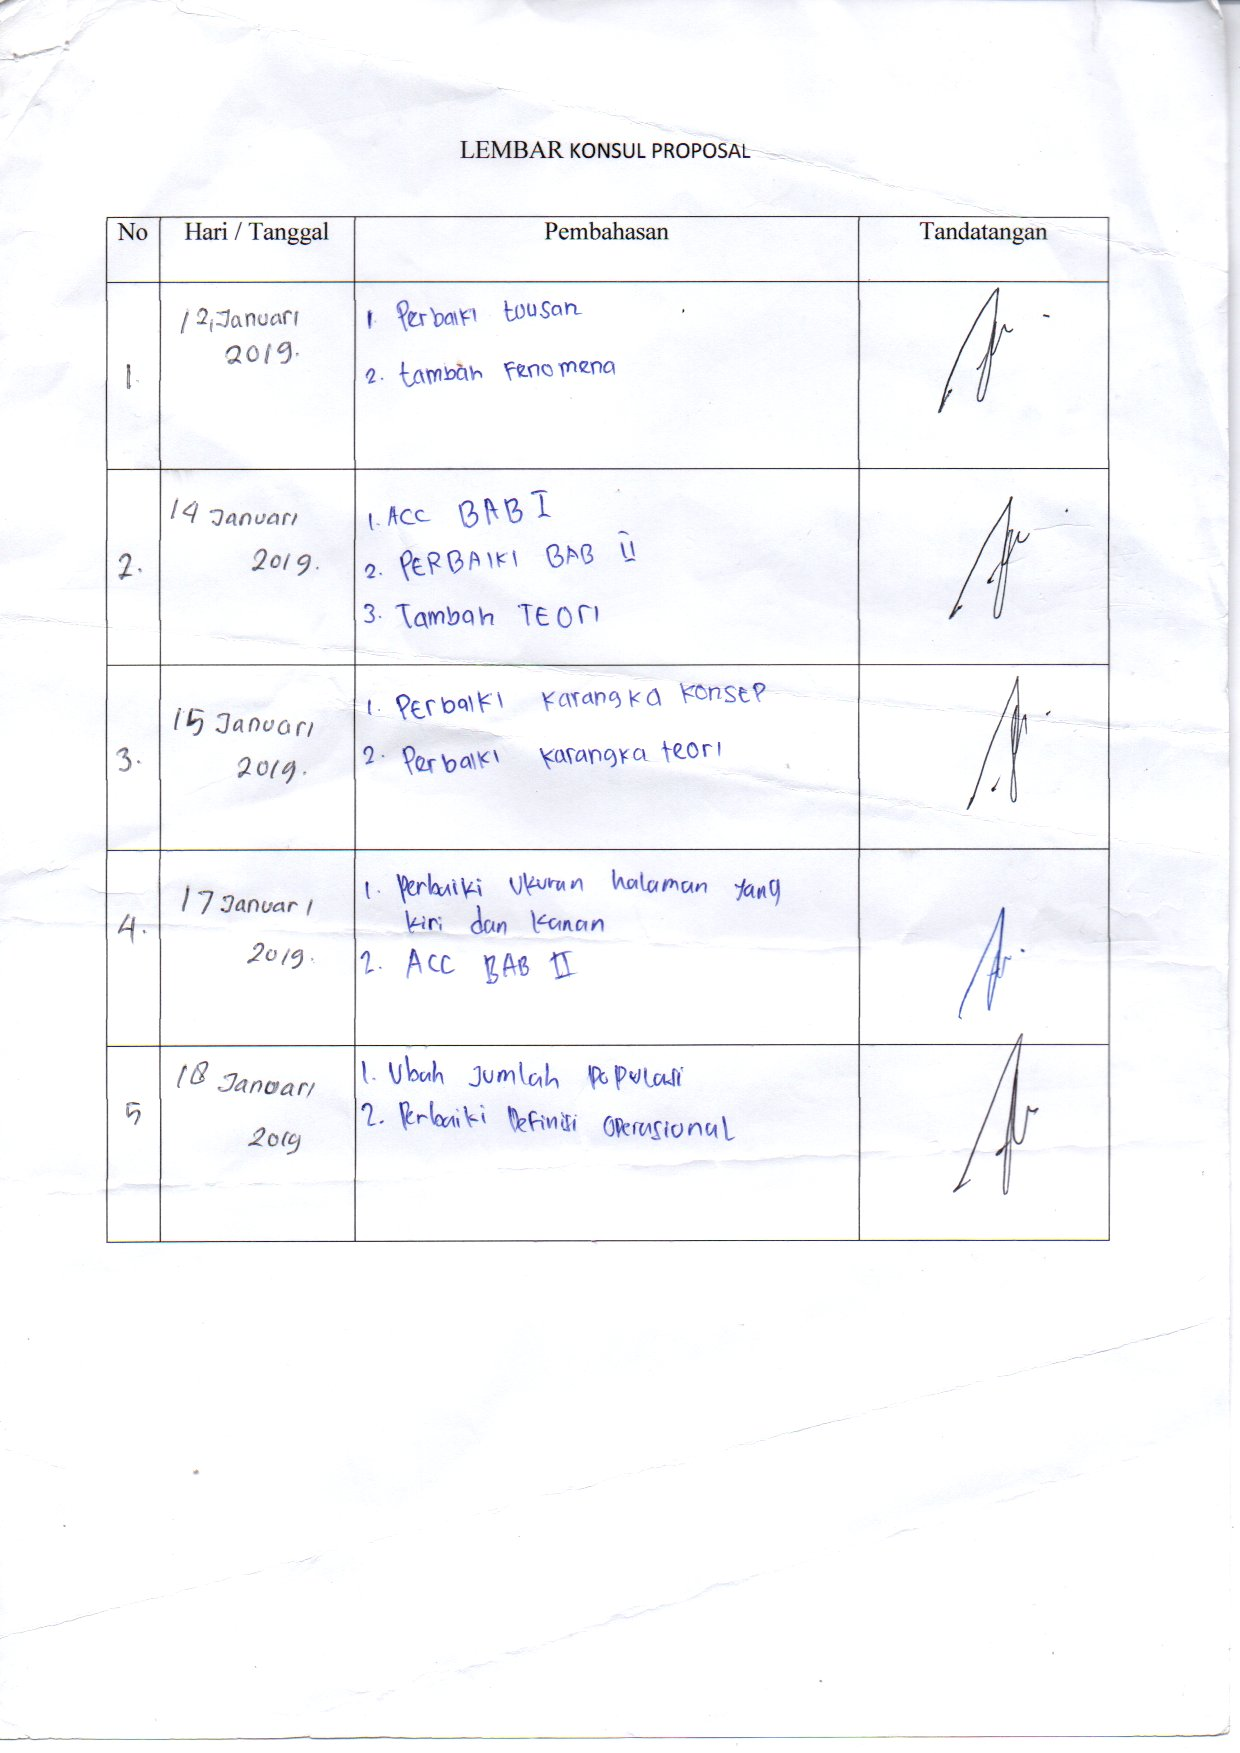 LEMBAR KONSUL PROPOSAL
No Hari / Tanggal Pembahasan Tandatangan
1. 12, Januari 2019.
1. Perbaiki tulisan
2. tambah Fenomena
2. 14 Januari 2019.
1. ACC BAB I
2. PERBAIKI BAB II
3. Tambah TEORI
3. 15 Januari 2019.
1. Perbaiki karangka konsep
2. Perbaiki karangka teori
4. 17 Januari 2019.
1. Perbaiki ukuran halaman yang
kiri dan kanan
2. ACC BAB II
5 18 Januari 2019
1. Ubah Jumlah Populasi
2. Perbaiki Definisi Operasional